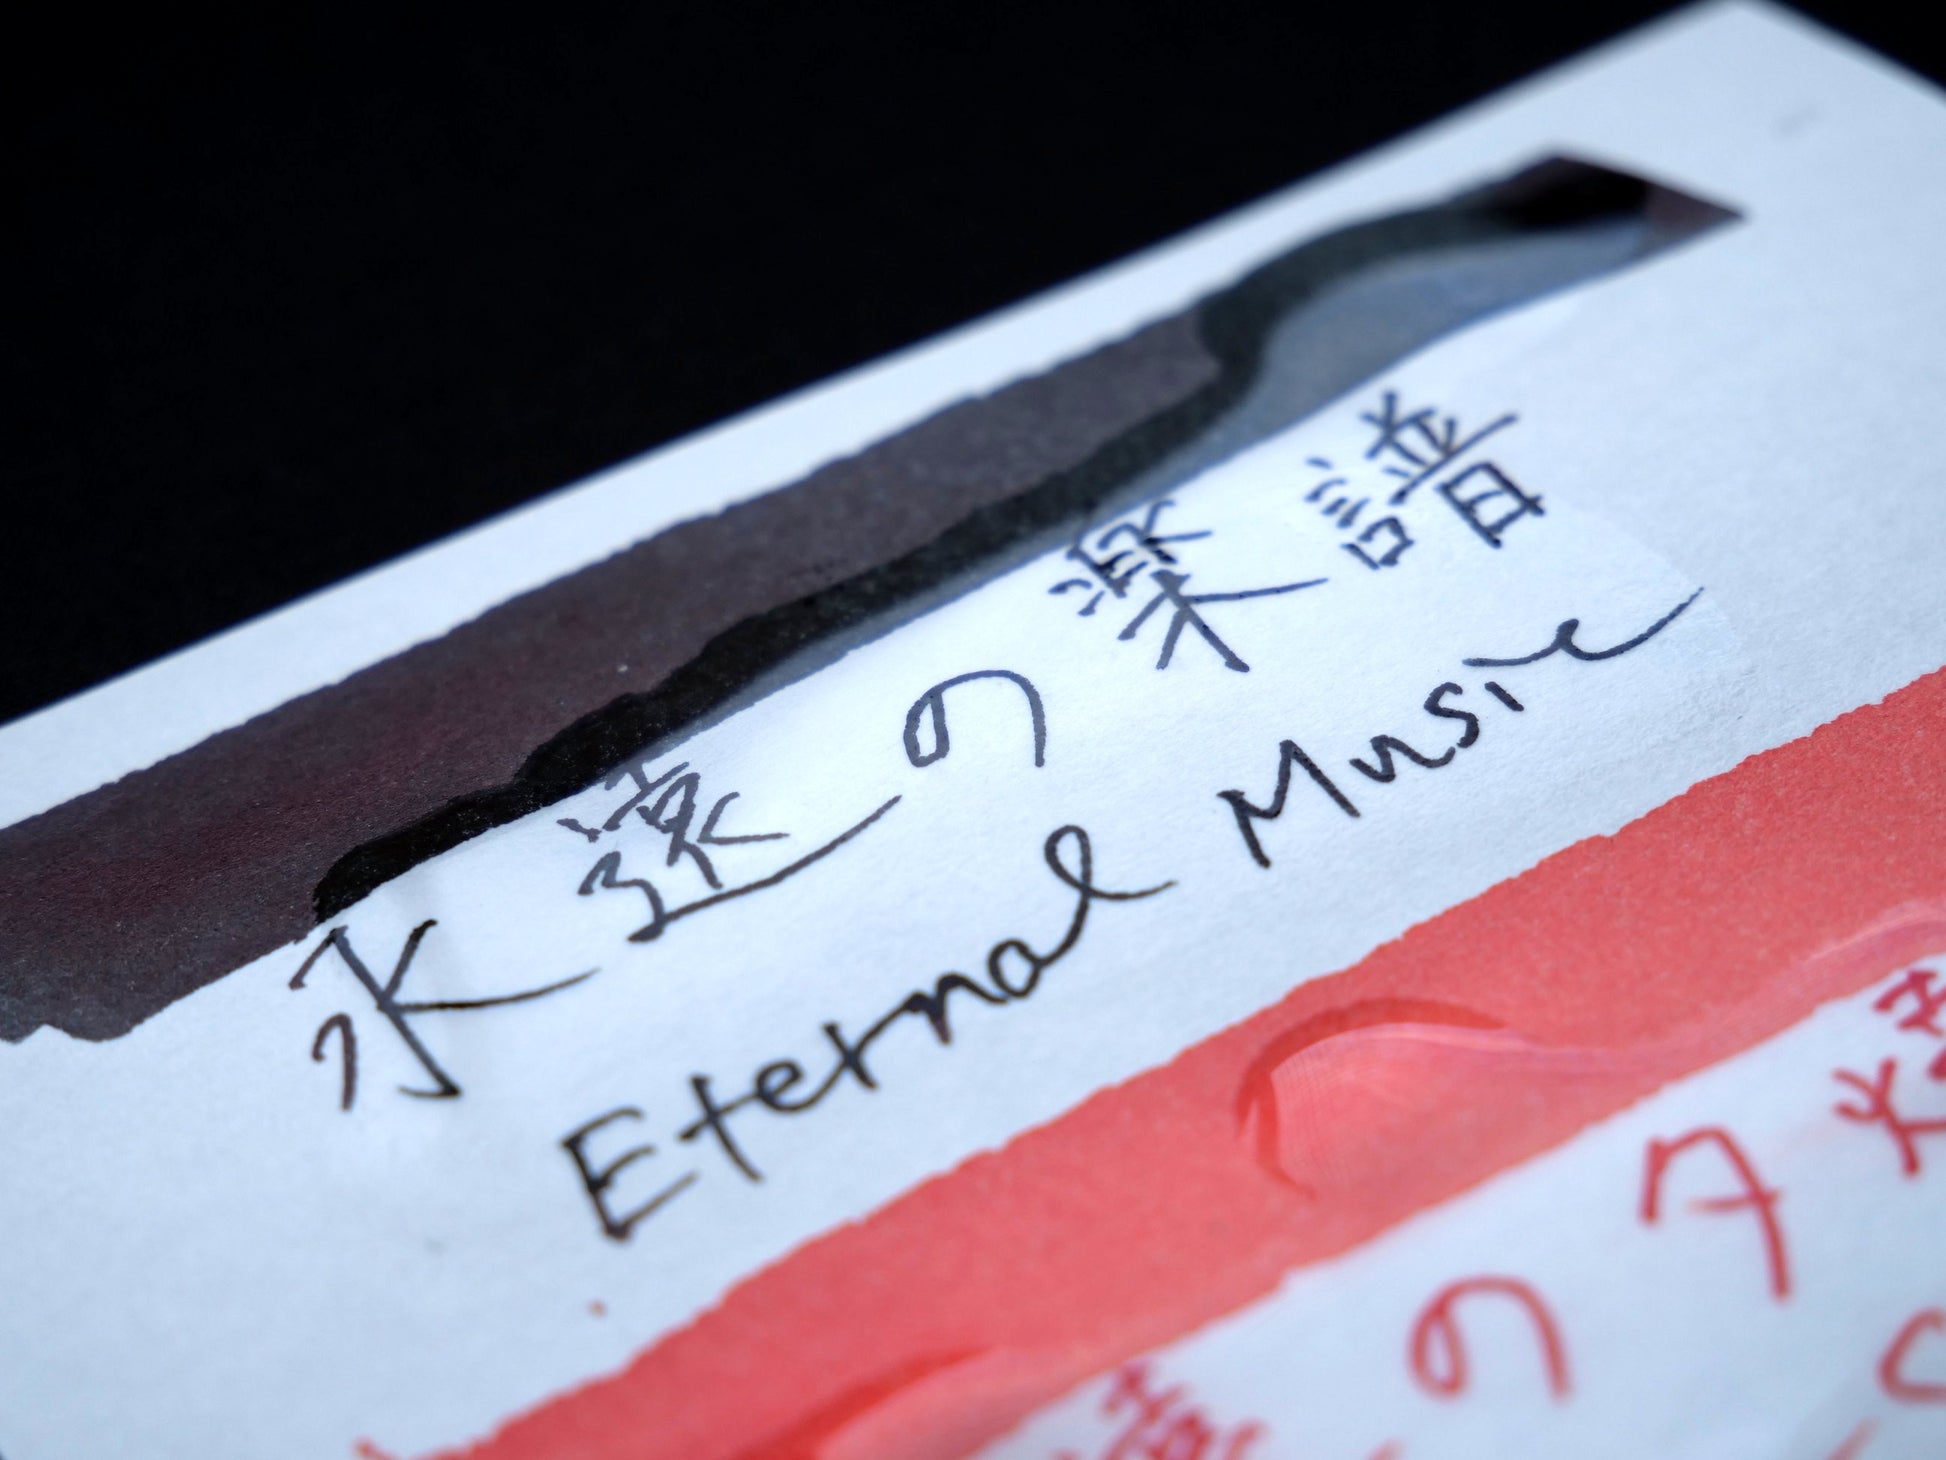 永遠の楽譜
Eternal Music
の